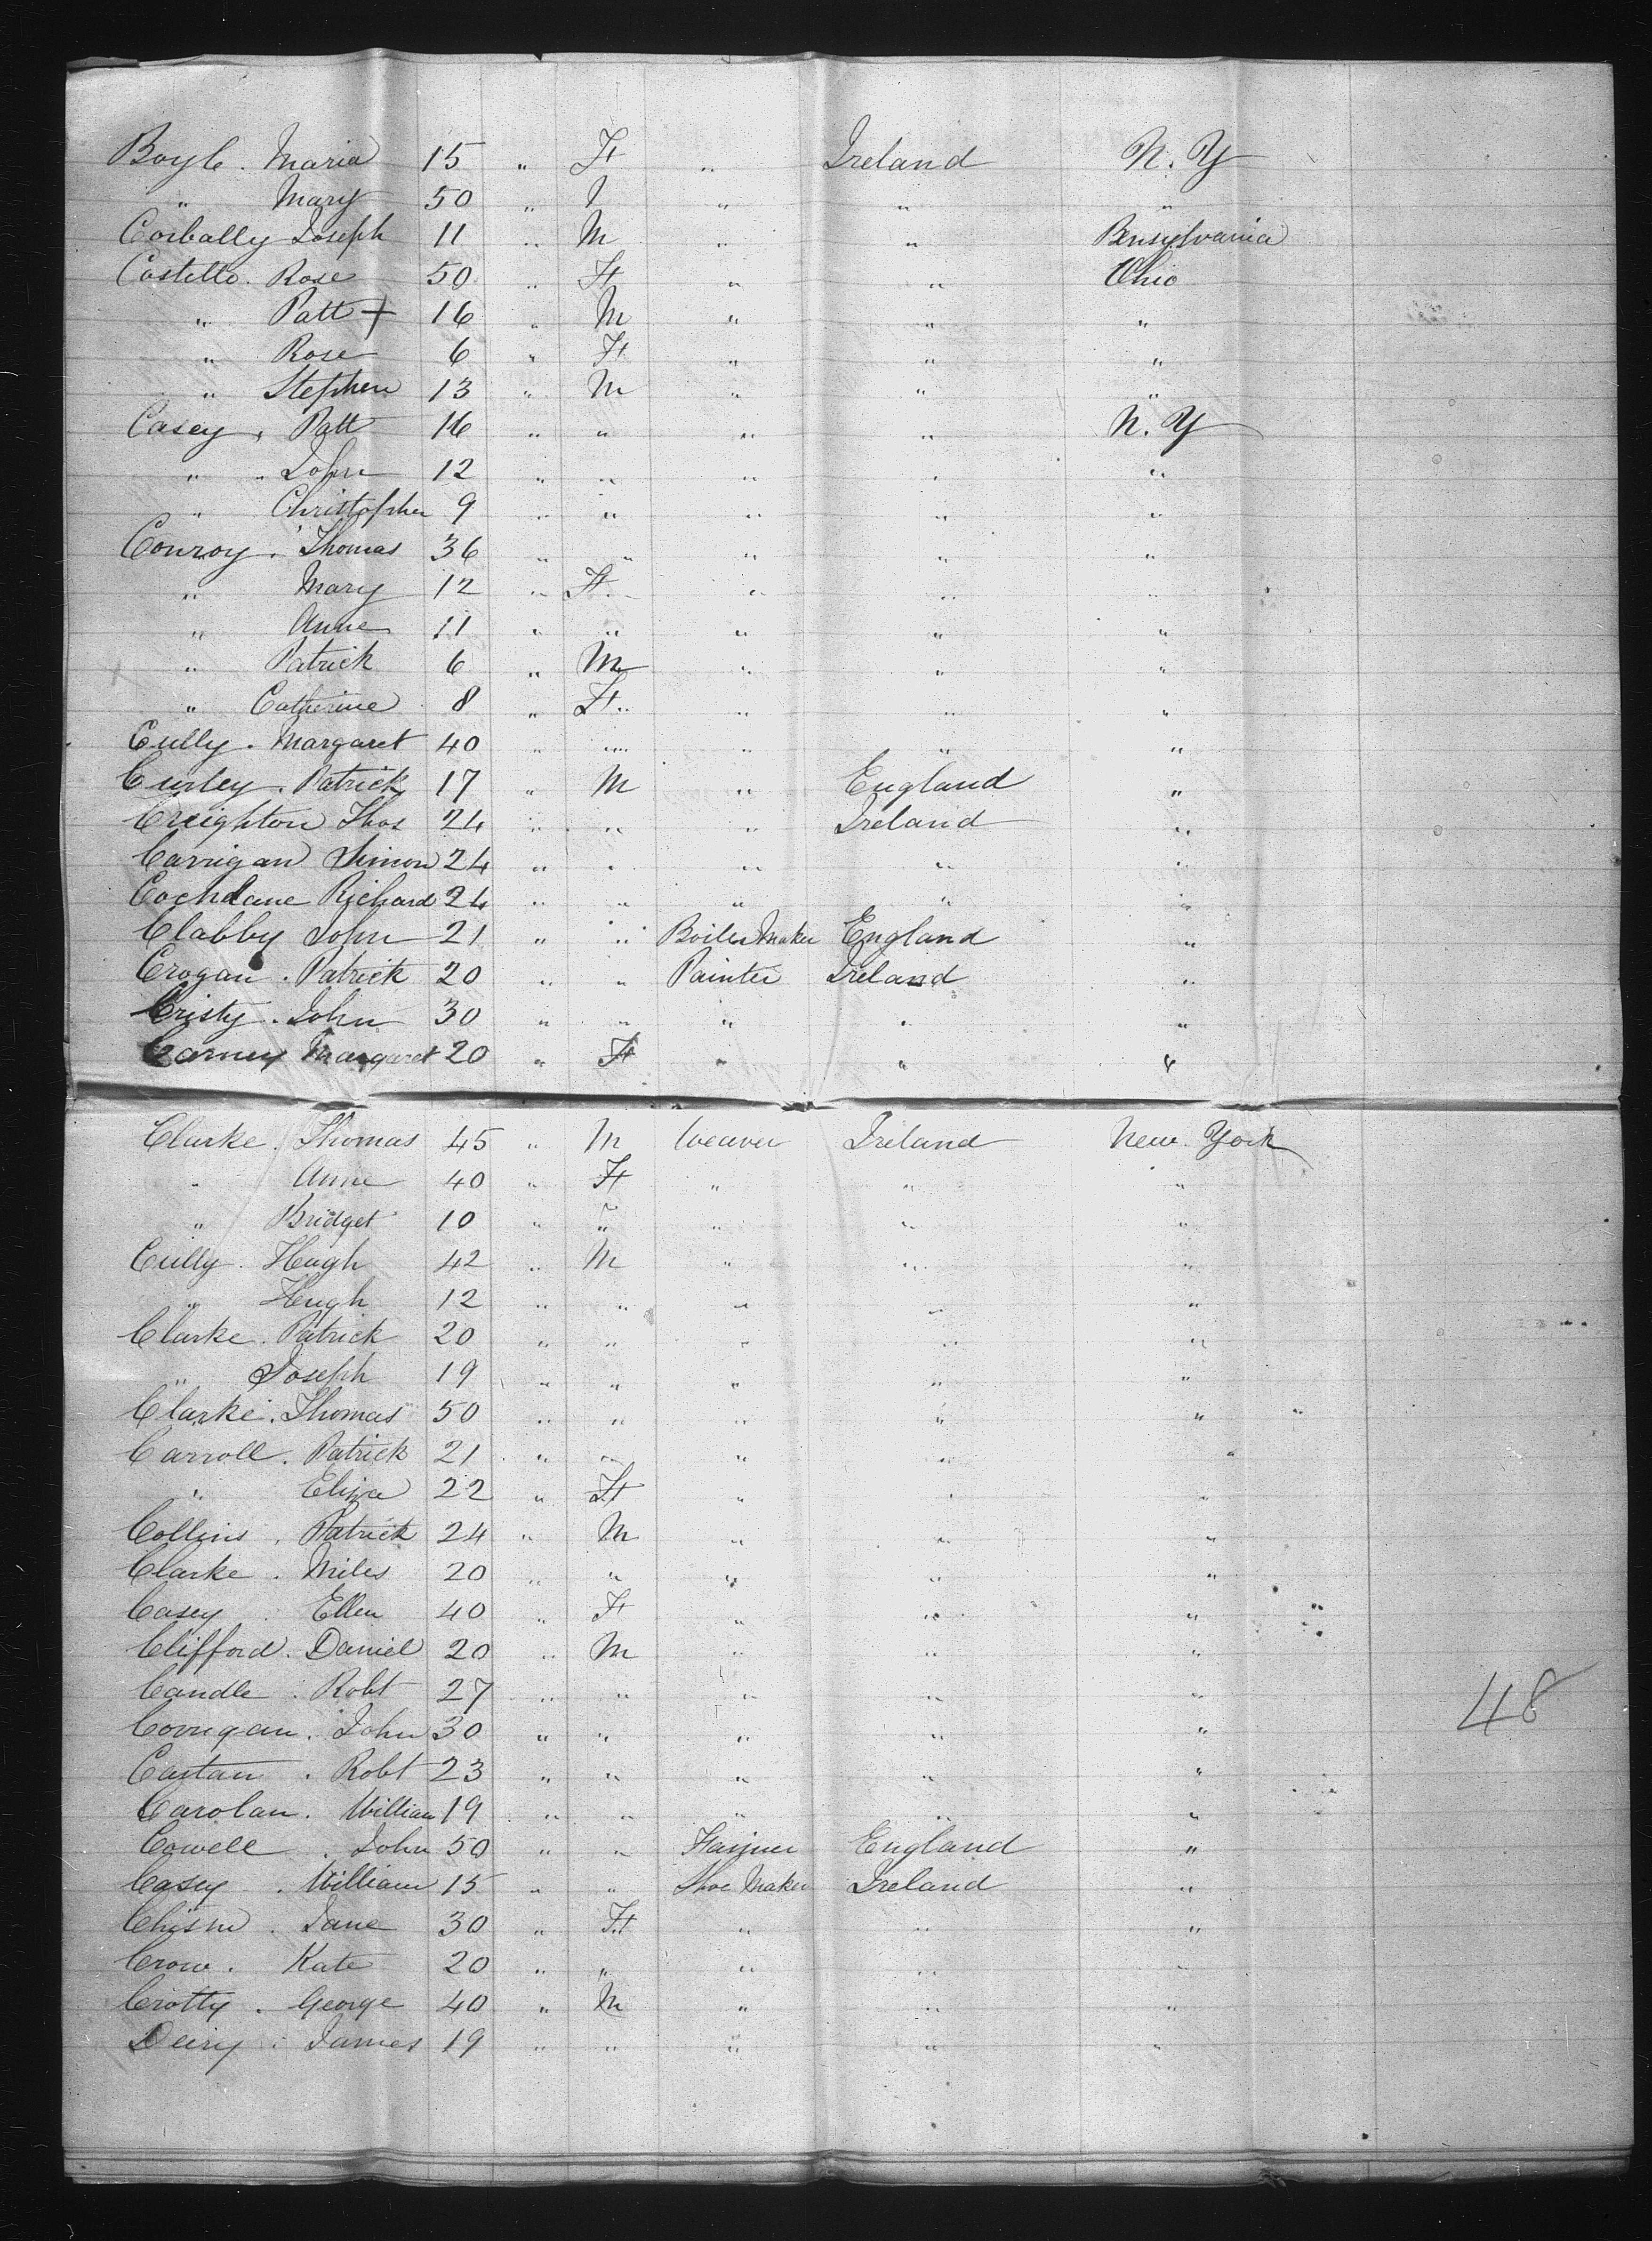 Boyle . Maria 15 " F " Ireland N. Y
" Mary 50 " " " " "
Corbally Joseph 11 " M " " Pensylvania
Costello . Rose 50 " F " " Ohio
" Patt + 16 " M " " "
" Rose 6 " F " " "
" Stephen 13 " M " " "
Casey . Patt 16 " " " " N. Y
" " John 12 " " " " "
" Christopher 9 " " " " "
Conroy . Thomas 36 " " " " "
" Mary 12 " F " " "
" Anne 11 " " " " "
" Patrick 6 " M " " "
" Catherine 8 " F " " "
Cully . Margaret 40 " " " " "
Curley . Patrick 17 " M " England "
Creighton Thos 24 " " " Ireland "
Carrigan Simon 24 " " " " "
Cochlane Richard 24 " " " " "
Clabby John 21 " " Boiler Maker England "
Crogan . Patrick 20 " " Painter Ireland "
Cristy . John 30 " " " " "
Carney Margaret 20 " F " " "
Clarke . Thomas 45 " M Weaver Ireland New York
" Anne 40 " F " " "
" Bridget 10 " " " " "
Cully . Hugh 42 " M " " "
" Hugh 12 " " " " "
Clarke . Patrick 20 " " " " "
" Joseph 19 " " " " "
Clarke . Thomas 50 " " " " "
Carroll . Patrick 21 " " " " "
" Eliza 22 " F " " "
Collins . Patrick 24 " M " " "
Clarke . Miles 20 " " " " "
Casey . Ellen 40 " F " " "
Clifford . Daniel 20 " M " " "
Candle . Robt 27 " " " " "
Corrigan . John 30 " " " " "
Castan . Robt 23 " " " " "
Carolan . William 19 " " " " "
Cowell . John 50 " " England "
Casey . William 15 " " Shoe Maker Ireland "
Chism . Jane 30 " F " " "
Crow . Kate 20 " " " " "
Crotty . George 40 " M " " "
Deiry . James 19 " " " " "
48